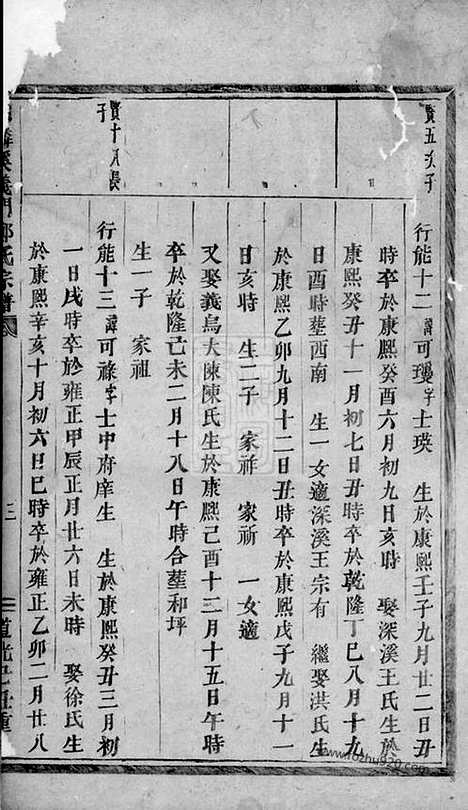 賢五次子
行能十二諱可璣字士瑛　生於康熙壬子九月廿二日丑
時卒於康熙癸酉六月初九日亥時　娶深溪王氏生於
康熙癸丑十一月初七日丑時卒於乾隆丁巳八月十九
日酉時塟西南　生一女適深溪王宗有　繼娶洪氏生
於康熙乙卯九月十二日丑時卒於康熙戊子九月十一
日亥時　生二子　家祥　家祈　一女適
又娶義烏大陳陳氏生於康熙己酉十二月十五日午時
卒於乾隆己未二月十八日午時合塟和坪
生一子　家祖
賢十八長子
行能十三諱可祿字士中府庠生　生於康熙癸丑三月初
一日戌時卒於雍正甲辰正月廿六日未時　娶徐氏生
於康熙辛亥十月初六日巳時卒於雍正乙卯二月廿八
溪義門鄭氏宗譜　三　道光己重
www.fozhu920.com